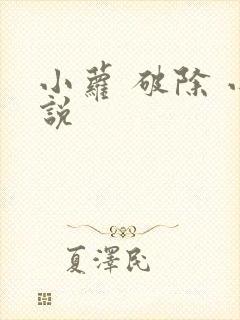 小蘿 破除
説
夏澤民